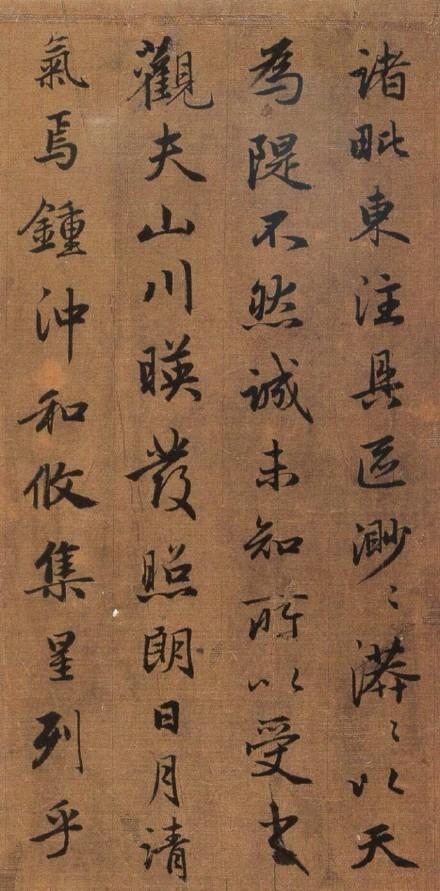 諸毗東注具区渺〻漭〻以天
為隄不然誠未知所以受之
觀夫山川暎發照朗日月清
氣焉鍾沖和攸集星列乎